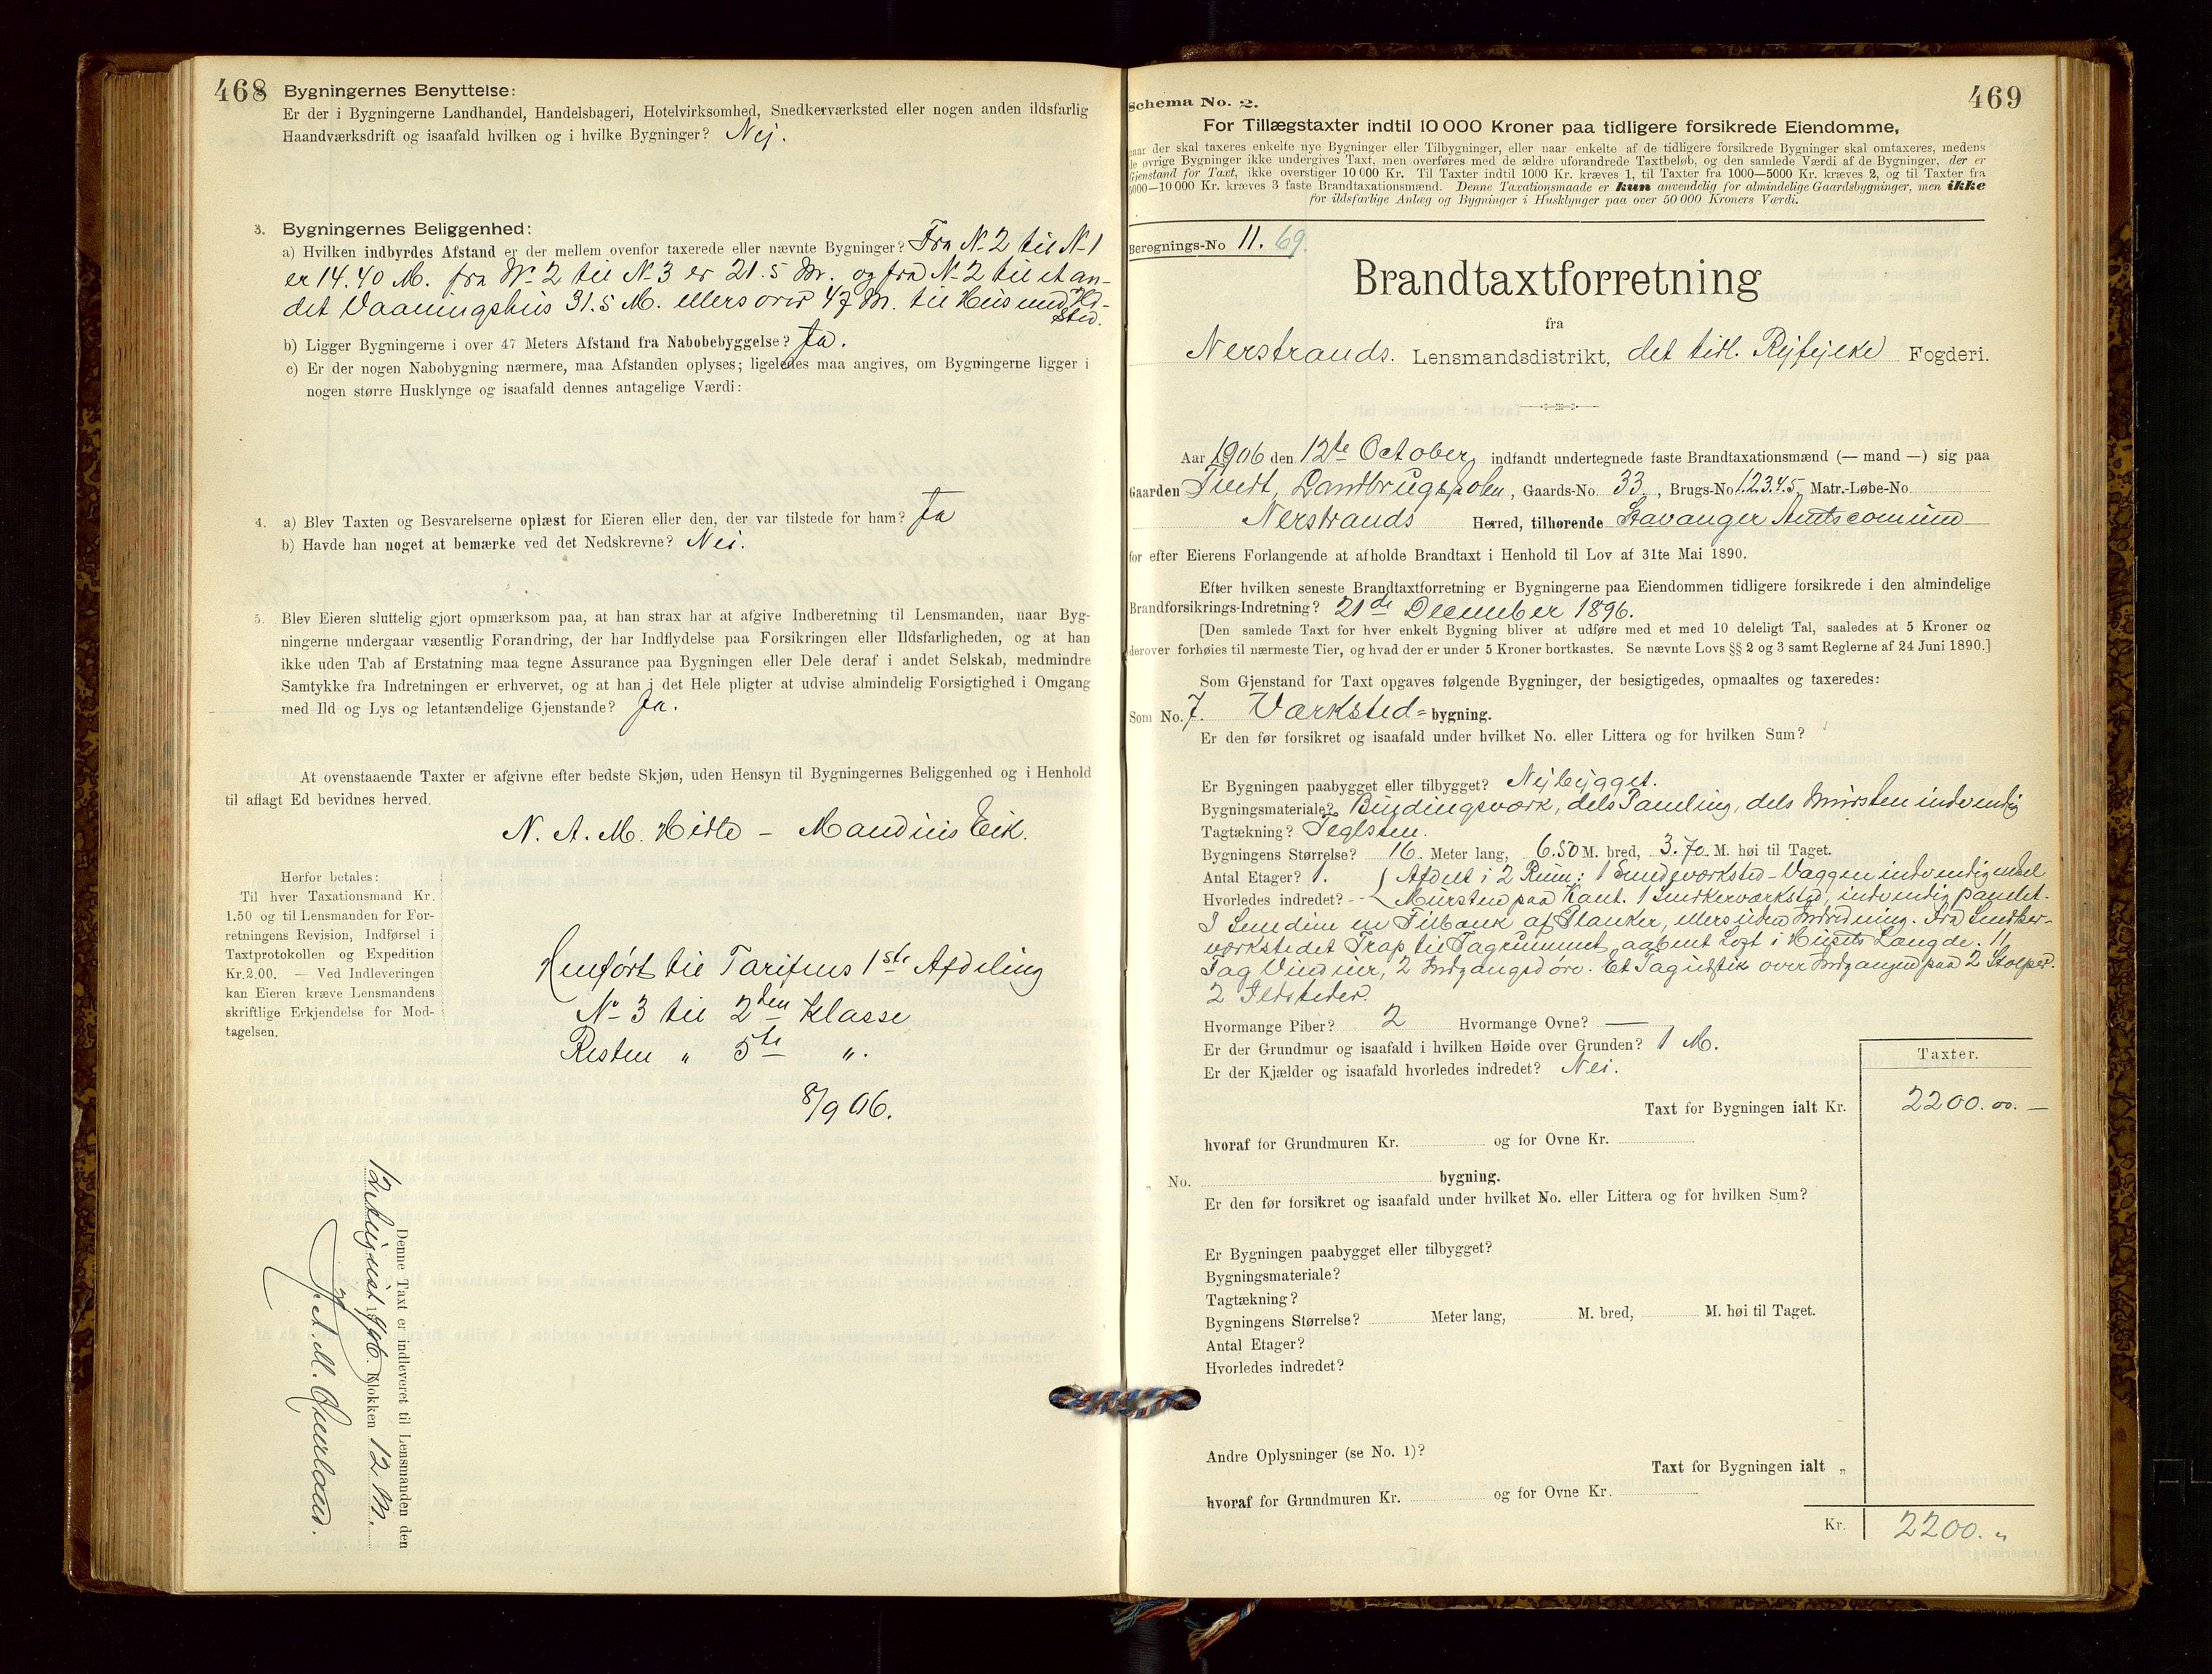 468
Bygningernes Benyttelse:
Er der i Bygningerne Landhandel, Handelsbageri, Hotelvirksomhed, Snedkerværksted eller nogen anden ildsfarlig
Haandværksdrift og isaafald hvilken og i hvilke Bygninger? Nej.
3. Bygningernes Beliggenhed:
a) Hvilken indbyrdes Afstand er der mellem ovenfor taxerede eller nævnte Bygninger? Fra N-2 til N-1
er 14.40 M. fra N-2 til N-3 er 21.5 M. og fra N-2 til et an-
det Vaaningshus 31.5 M. ellers over 47 M. til Hus med Ild-
sted.
b) Ligger Bygningerne i over 47 Meters Afstand fra Nabobebyggelse? Ja.
c) Er der nogen Nabobygning nærmere, maa Afstanden oplyses; ligeledes maa angives, om Bygningerne ligger i
nogen større Husklynge og isaafald dennes antagelige Værdi:
4. a) Blev Taxten og Besvarelserne oplæst for Eieren eller den, der var tilstede for ham? Ja
b) Havde han noget at bemærke ved det Nedskrevne? Nei.
5. Blev Eieren sluttelig gjort opmærksom paa, at han strax har at afgive Indberetning til Lensmanden, naar Byg-
ningerne undergaar væsentlig Forandring, der har Indflydelse paa Forsikringen eller Ildsfarligheden, og at han
ikke uden Tab af Erstatning maa tegne Assurance paa Bygningen eller Dele deraf i andet Selskab, medmindre
Samtykke fra Indretningen er erhvervet, og at han i det Hele pligter at udvise almindelig Forsigtighed i Omgang
med Ild og Lys og letantændelige Gjenstande? Ja.
At ovenstaaende Taxter er afgivne efter bedste Skjøn, uden Hensyn til Bygningernes Beliggenhed og i Henhold
til aflagt Ed bevidnes herved.
N. A. M. Hidle - Maudius Eik.
Herfor betales:
Til hver Taxationsmand Kr.
1.50 og til Lensmanden for For-
retningens Revision, Indførsel i
Taxtprotokollen og Expedition
Kr.2.00. — Ved Indleveringen
kan Eieren kræve Lensmandens
skriftlige Erkjendelse for Mod-
tagelsen.
Henført til Tarifens 1ste Afdeling
N-3 til 2den Klasse
Resten " 5te ".
8/9 06.
Denne Taxt er indleveret til Lensmanden den
Klokken 12 M.
469
Schema No. 2.
For Tillægstaxter indtil 10 000 Kroner paa tidligere forsikrede Eiendomme,
naar der skal taxeres enkelte nye Bygninger eller Tilbygninger, eller naar enkelte af de tidligere forsikrede Bygninger skal omtaxeres, medens
de øvrige Bygninger ikke undergives Taxt, men overføres med de ældre uforandrede Taxtbeløb, og den samlede Værdi af de Bygninger, der er
Gjenstand for Taxt, ikke overstiger 10 000 Kr. Til Taxter indtil 1000 Kr. kræves 1, til Taxter fra 1000—5000 Kr. kræves 2, og til Taxter fra
5000—10 000 Kr. kræves 3 faste Brandtaxationsmænd. Denne Taxationsmaade er kun anvendelig for almindelige Gaardsbygninger, men ikke
for ildsfarlige Anlæg og Bygninger i Husklynger paa over 50 000 Kroners Værdi.
Beregnings-No 11. 69.
Brandtaxtforretning
fra
Nerstrands. Lensmandsdistrikt, det tidl. Ryfylke Fogderi.
Aar 1906 den 12te October, indfandt undertegnede faste Brandtaxationsmænd (— mand —) sig paa
Gaarden Tvedt, Landbrugsskolen, Gaards-No. 33, Brugs-No 1.2.3.4.5, Matr.-Løbe-No.
Nerstrands Herred, tilhørende Stavanger Amtscomune
for efter Eierens Forlangende at afholde Brandtaxt i Henhold til Lov af 31te Mai 1890.
Efter hvilken seneste Brandtaxtforretning er Bygningerne paa Eiendommen tidligere forsikrede i den almindelige
Brandforsikrings-Indretning? 21de December 1896.
[Den samlede Taxt for hver enkelt Bygning bliver at udføre med et med 10 deleligt Tal, saaledes at 5 Kroner og
derover forhøies til nærmeste Tier, og hvad der er under 5 Kroner bortkastes. Se nævnte Lovs §§ 2 og 3 samt Reglerne af 24 Juni 1890.]
Som Gjenstand for Taxt opgaves følgende Bygninger, der besigtigedes, opmaaltes og taxeredes:
Som No. 7. Værksted- bygning.
Er den før forsikret og isaafald under hvilket No. eller Littera og for hvilken Sum?
Er Bygningen paabygget eller tilbygget? Nybygget.
Bygningsmateriale? Bindingsværk, dels Paneling, dels Mursten indvendig
Tagtækning? Teglsten.
Bygningens Størrelse? 16 Meter lang, 6.50 M. bred, 3.70 M. høi til Taget.
Antal Etager? 1. Afdelt i 2 Rum: 1 Smedeværksted - Væggen indvendig med
Hvorledes indredet? Mursten paa Kant. 1 Snedkerværksted, indvendig panelet.
I Smedien en Filbænk af Planker, ellers uden Indredning. Fra Snedker-
værkstedet Trap til Tagrummet, aabent Loft i Husets Længde. 11
Tag Vinduer, 2 Indgangsdøre. Et Tagudstik over Indgangen paa 2 Stolper.
2 Ildsteder.
Hvormange Piber? 2 Hvormange Ovne? —
Er der Grundmur og isaafald i hvilken Høide over Grunden? 1 M.
Er der Kjælder og isaafald hvorledes indredet? Nei.
Taxter.
Taxt for Bygningen ialt Kr. 2200.00. —
hvoraf for Grundmuren Kr. og for Ovne Kr.
„ No. bygning.
Er den før forsikret og isaafald under hvilket No. eller Littera og for hvilken Sum?
Er Bygningen paabygget eller tilbygget?
Bygningsmateriale?
Tagtækning?
Bygningens Størrelse? Meter lang, M. bred, M. høi til Taget.
Antal Etager?
Hvorledes indredet?
Andre Oplysninger (se No. 1)?
Taxt for Bygningen ialt „
hvoraf for Grundmuren Kr. og for Ovne Kr.
Kr. 2200. „